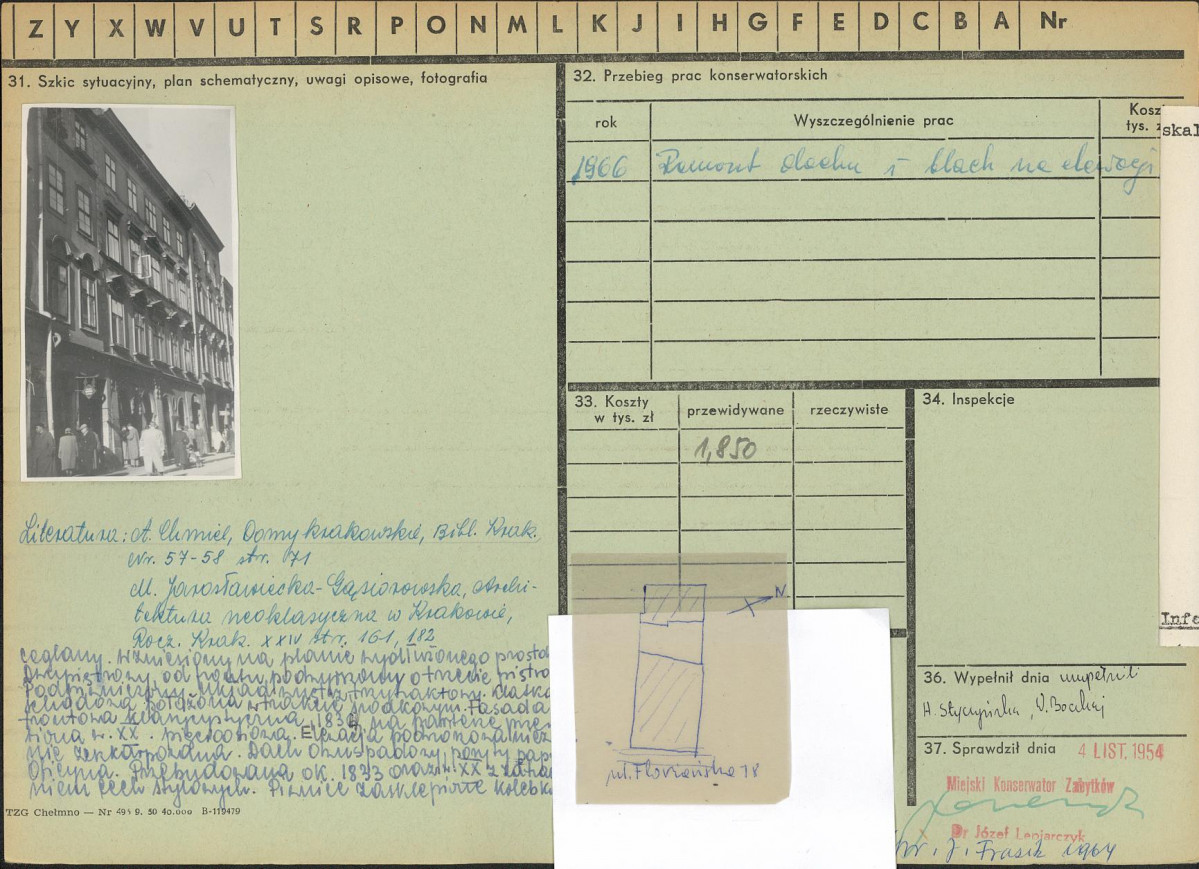 Z Y X W V U T S R P O N M L K J I H G F E D C B A Nr
31. Szkic sytuacyjny, plan schematyczny, uwagi opisowe, fotografia
Literatura: A. Chmiel, Domy krakowskie, Bibl. Krak.
Nr. 57-58 str. 71
M. Jarosławiecka-Gąsiorowska, Archi-
tektura neoklasyczna w Krakowie,
Rocz. Krak. XXIV str. 161, 182
ceglany. Wzniesiony na planie wydłużonego prostok
od frontu podwyższony o trzecie piętro
Podpiwniczony. Układ wnętrz trzytraktowy. Klatka
schodowa położona w trakcie środkowym. Fasada
frontowa klasycystyczna, na parterze
w. XX. Elewacja
nie Dach dwuspadowy, kryty pap
Oficyna. Przebudowana ok. 1873 oraz w XX z
niem cech stylowych. Piwnice zasklepione kolebk
TZG Chełmno — Nr 493 9. 50 40.000 B-119479
32. Przebieg prac konserwatorskich
rok Wyszczególnienie prac Kosz
tys. z
1966 Remont dachu i blach na elewacji
skal
33. Koszty
w tys. zł
przewidywane rzeczywiste
1,850
34. Inspekcje
N
ul. Floriańska 18
Info
36. Wypełnił dnia uzupełnili
H. Styczyńska,
37. Sprawdził dnia 4 LIST. 1954
Miejski Konserwator Zabytków
Dr Józef Lepiarczyk
J. Frasik 1964